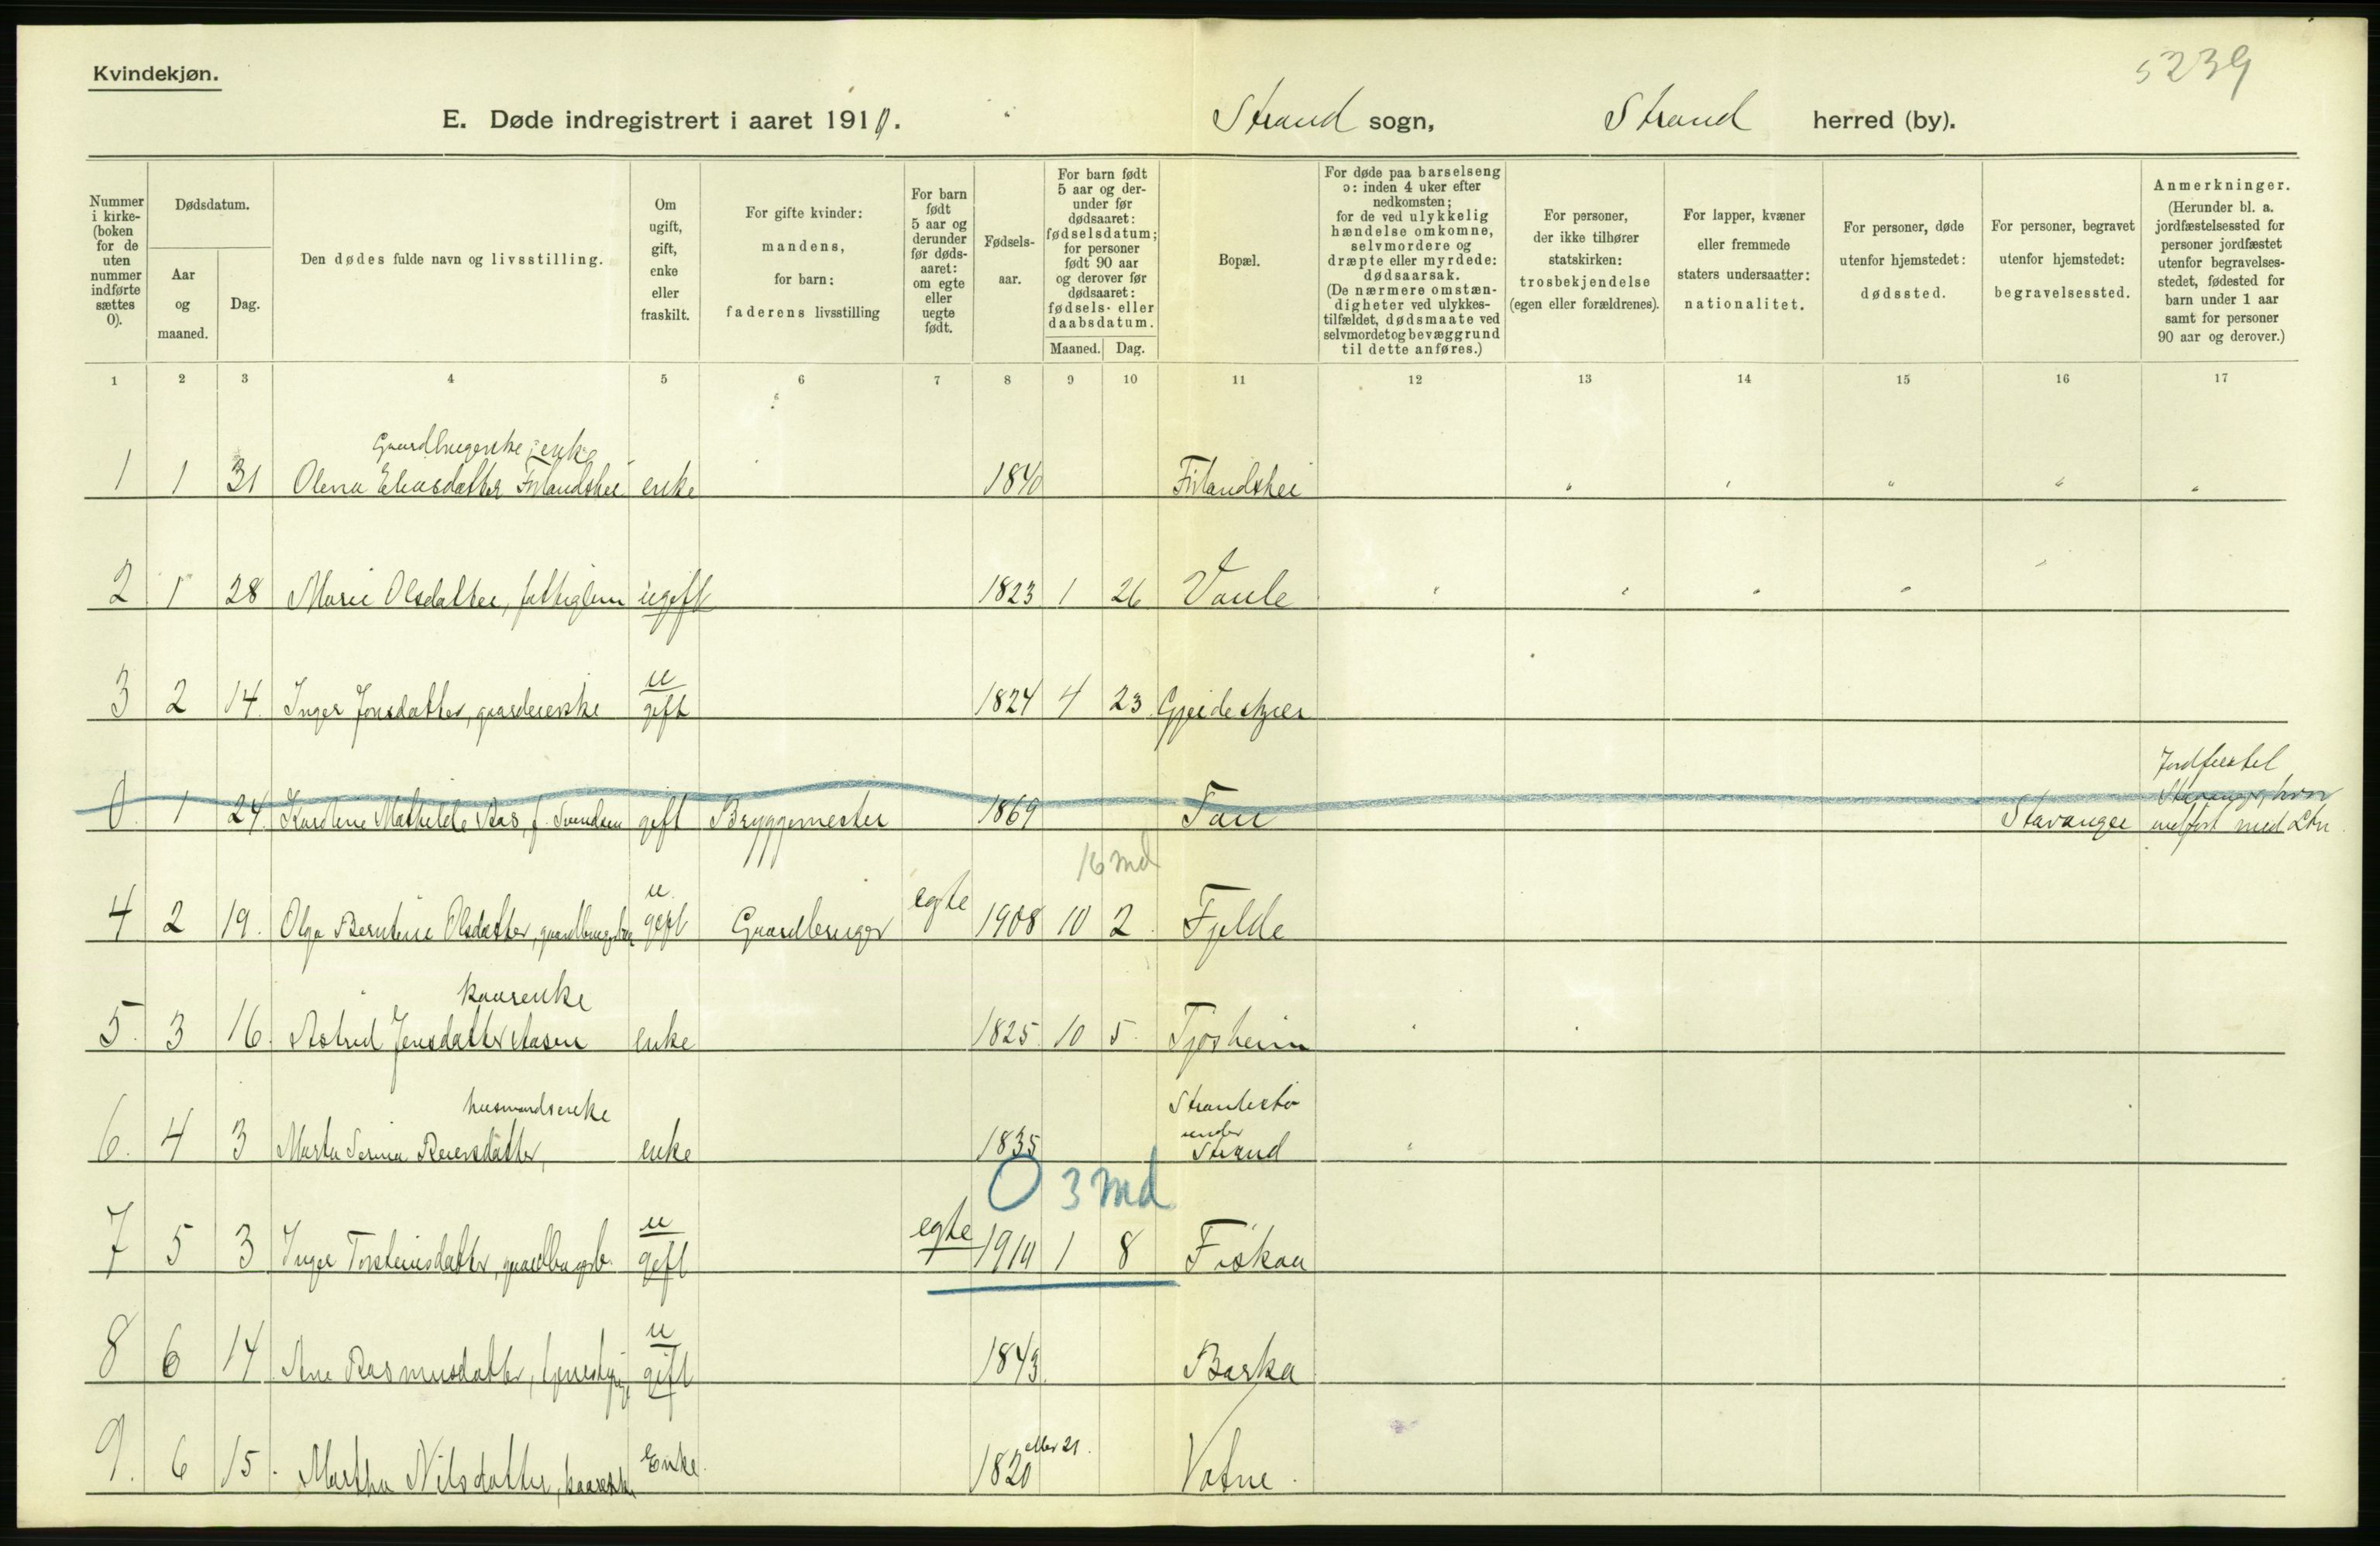 Kvindekjøn.
5239
E. Døde indregistrert i aaret 1910. Strand sogn, Strand herred (by).
Nummer i kirke-(boken for de uten nummer indførte sættes 0).
Dødsdatum.
Aar og maaned.
Dag.
Den dødes fulde navn og livsstilling.
Om ugift, gift, enke eller fraskilt.
For gifte kvinder: mandens, for barn: faderens livsstilling
For barn født 5 aar og derunder før døds-aaret: om egte eller uegte født.
Fødsels-aar.
For barn født 5 aar og der-under før dødsaaret: fødselsdatum; for personer født 90 aar og derover før dødsaaret: fødsels- eller daabsdatum.
Maaned. Dag.
Bopæl.
For døde paa barselseng ɔ: inden 4 uker efter nedkomsten; for de ved ulykkelig hændelse omkomne, selvmordere og dræpte eller myrdede: dødsaarsak. (De nærmere omstæn-digheter ved ulykkes-tilfældet, dødsmaate ved selvmordet og bevæggrund til dette anføres.)
For personer, der ikke tilhører statskirken: trosbekjendelse (egen eller forældrenes).
For lapper, kvæner eller fremmede staters undersaatter: nationalitet.
For personer, døde utenfor hjemstedet: dødssted.
For personer, begravet utenfor hjemstedet: begravelsessted.
Anmerkninger. (Herunder bl. a. jordfæstelsessted for personer jordfæstet utenfor begravelses-stedet, fødested for barn under 1 aar samt for personer 90 aar og derover.)
1 2 3 4 5 6 7 8 9 10 11 12 13 14 15 16 17
enke
1 1 31 Olena Eliasdatter Førlandshei enke 1840 Førlandshei " " " " "
2 1 28 Marie Olsdatter, fattiglem ugift 1823 1 26 Vaule " " " "
u
3 2 14. Inger Jonsdatter, gift 1824 4 23 Gjeideskjær
Jordfæstet
0. 1 24. Karoline Mathilde Aas, f. Svendsen gift Bryggemester 1869 Tau Stavanger
16 md
u. egte
4 2 19. Olga Berntine Olsdatter, gift Gaardbruger 1908 10 2. Fjelde
kaarenke
5. 3 16. Astrid Jensdatter enke 1825. 10 5. Tjøsheim
husmandsenke
under
6. 4 3 Marta Serina Reiersdatter, enke 1835 Strand
0 3 md
u egte
7 5 3 Inger Torsteinsdatter, gift 1910 1 8 Fiskaa
u
8 6 14 Ane Rasmusdatter, gift 1843. Barka
eller 21.
9. 6 15. Martha Nilsdatter, Enke. 1820 Vatne.